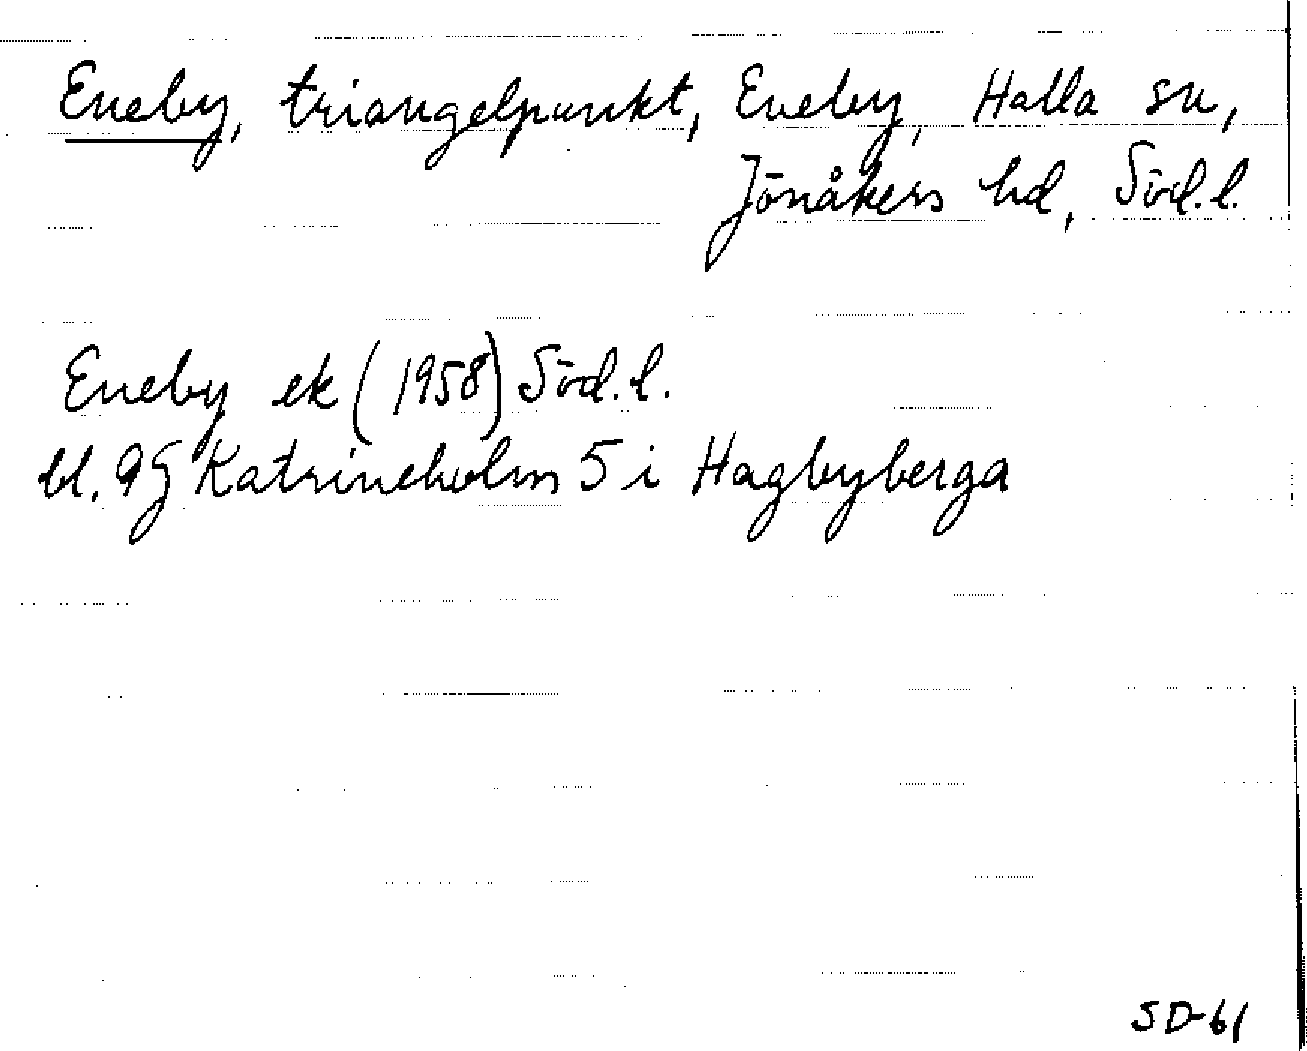 Eneby, triangelpunkt, Eneby, Halla sn,
Jönåkers hd, Söd.l.
Eneby ek (1958) Söd.l.
bl. 9G Katrineholm 5 i Hagbyberga
SD-61